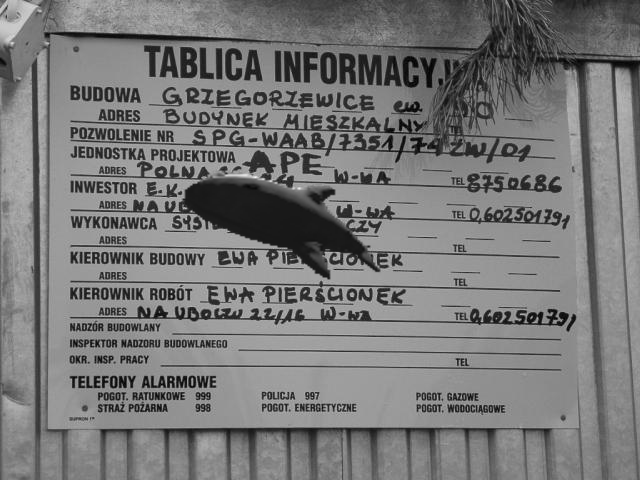 TABLICA INFORMACYJNA
BUDOWA GRZEGORZEWICE ew.
ADRES BUDYNEK MIESZKALNY
POZWOLENIE NR SPG-WAAB/7351/74 ZW/01
JEDNOSTKA PROJEKTOWA APE
ADRES POLNA W-WA TEL 8750686
INWESTOR E.K.
ADRES NA W-WA TEL 0,602501791
WYKONAWCA
ADRES TEL
KIEROWNIK BUDOWY EWA PIERŚCIONEK
ADRES TEL
KIEROWNIK ROBÓT EWA PIERŚCIONEK
ADRES NA UBOCZU 22/16 W-wa TEL 0,602501791
NADZÓR BUDOWLANY
INSPEKTOR NADZORU BUDOWLANEGO
OKR. INSP. PRACY TEL
TELEFONY ALARMOWE
POGOT. RATUNKOWE 999 POLICJA 997 POGOT. GAZOWE
STRAŻ POŻARNA 998 POGOT. ENERGETYCZNE POGOT. WODOCIĄGOWE